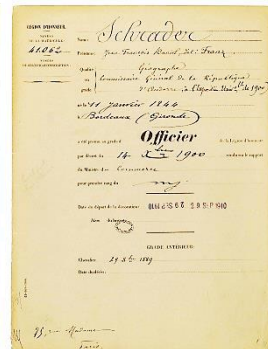 LÉGION D'HONNEUR
41.062
Nom: Schrader
Prénoms: Jean François Daniel, dit Franz
Qualité ou grade
Géographe
Commissaire Général de la République
d'Andorre à l'Exposition Univ. de 1900
né le 11 janvier 1844
à Bordeaux (Gironde)
a été promu au grade d'Officier de la Légion d'honneur
par décret du 14 Xbre 1900 rendu sur le rapport
du Ministre du Commerce
pour prendre rang du
GRADE ANTÉRIEUR
Chevalier 29 8bre 1889
Date du décès.
75, rue Madame
Paris